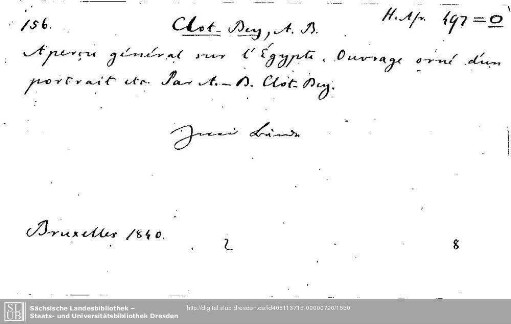 156. Clot-Bey, A. B. H. Afr. 497=0
Aperçu général sur l'Égypte. Ouvrage orné d'un
portrait etc Par A.-B. Clot-Bey.
Zwei Bände
Bruxelles 1840. 2 8
SLUB
Sächsische Landesbibliothek –
Staats- und Universitätsbibliothek Dresden